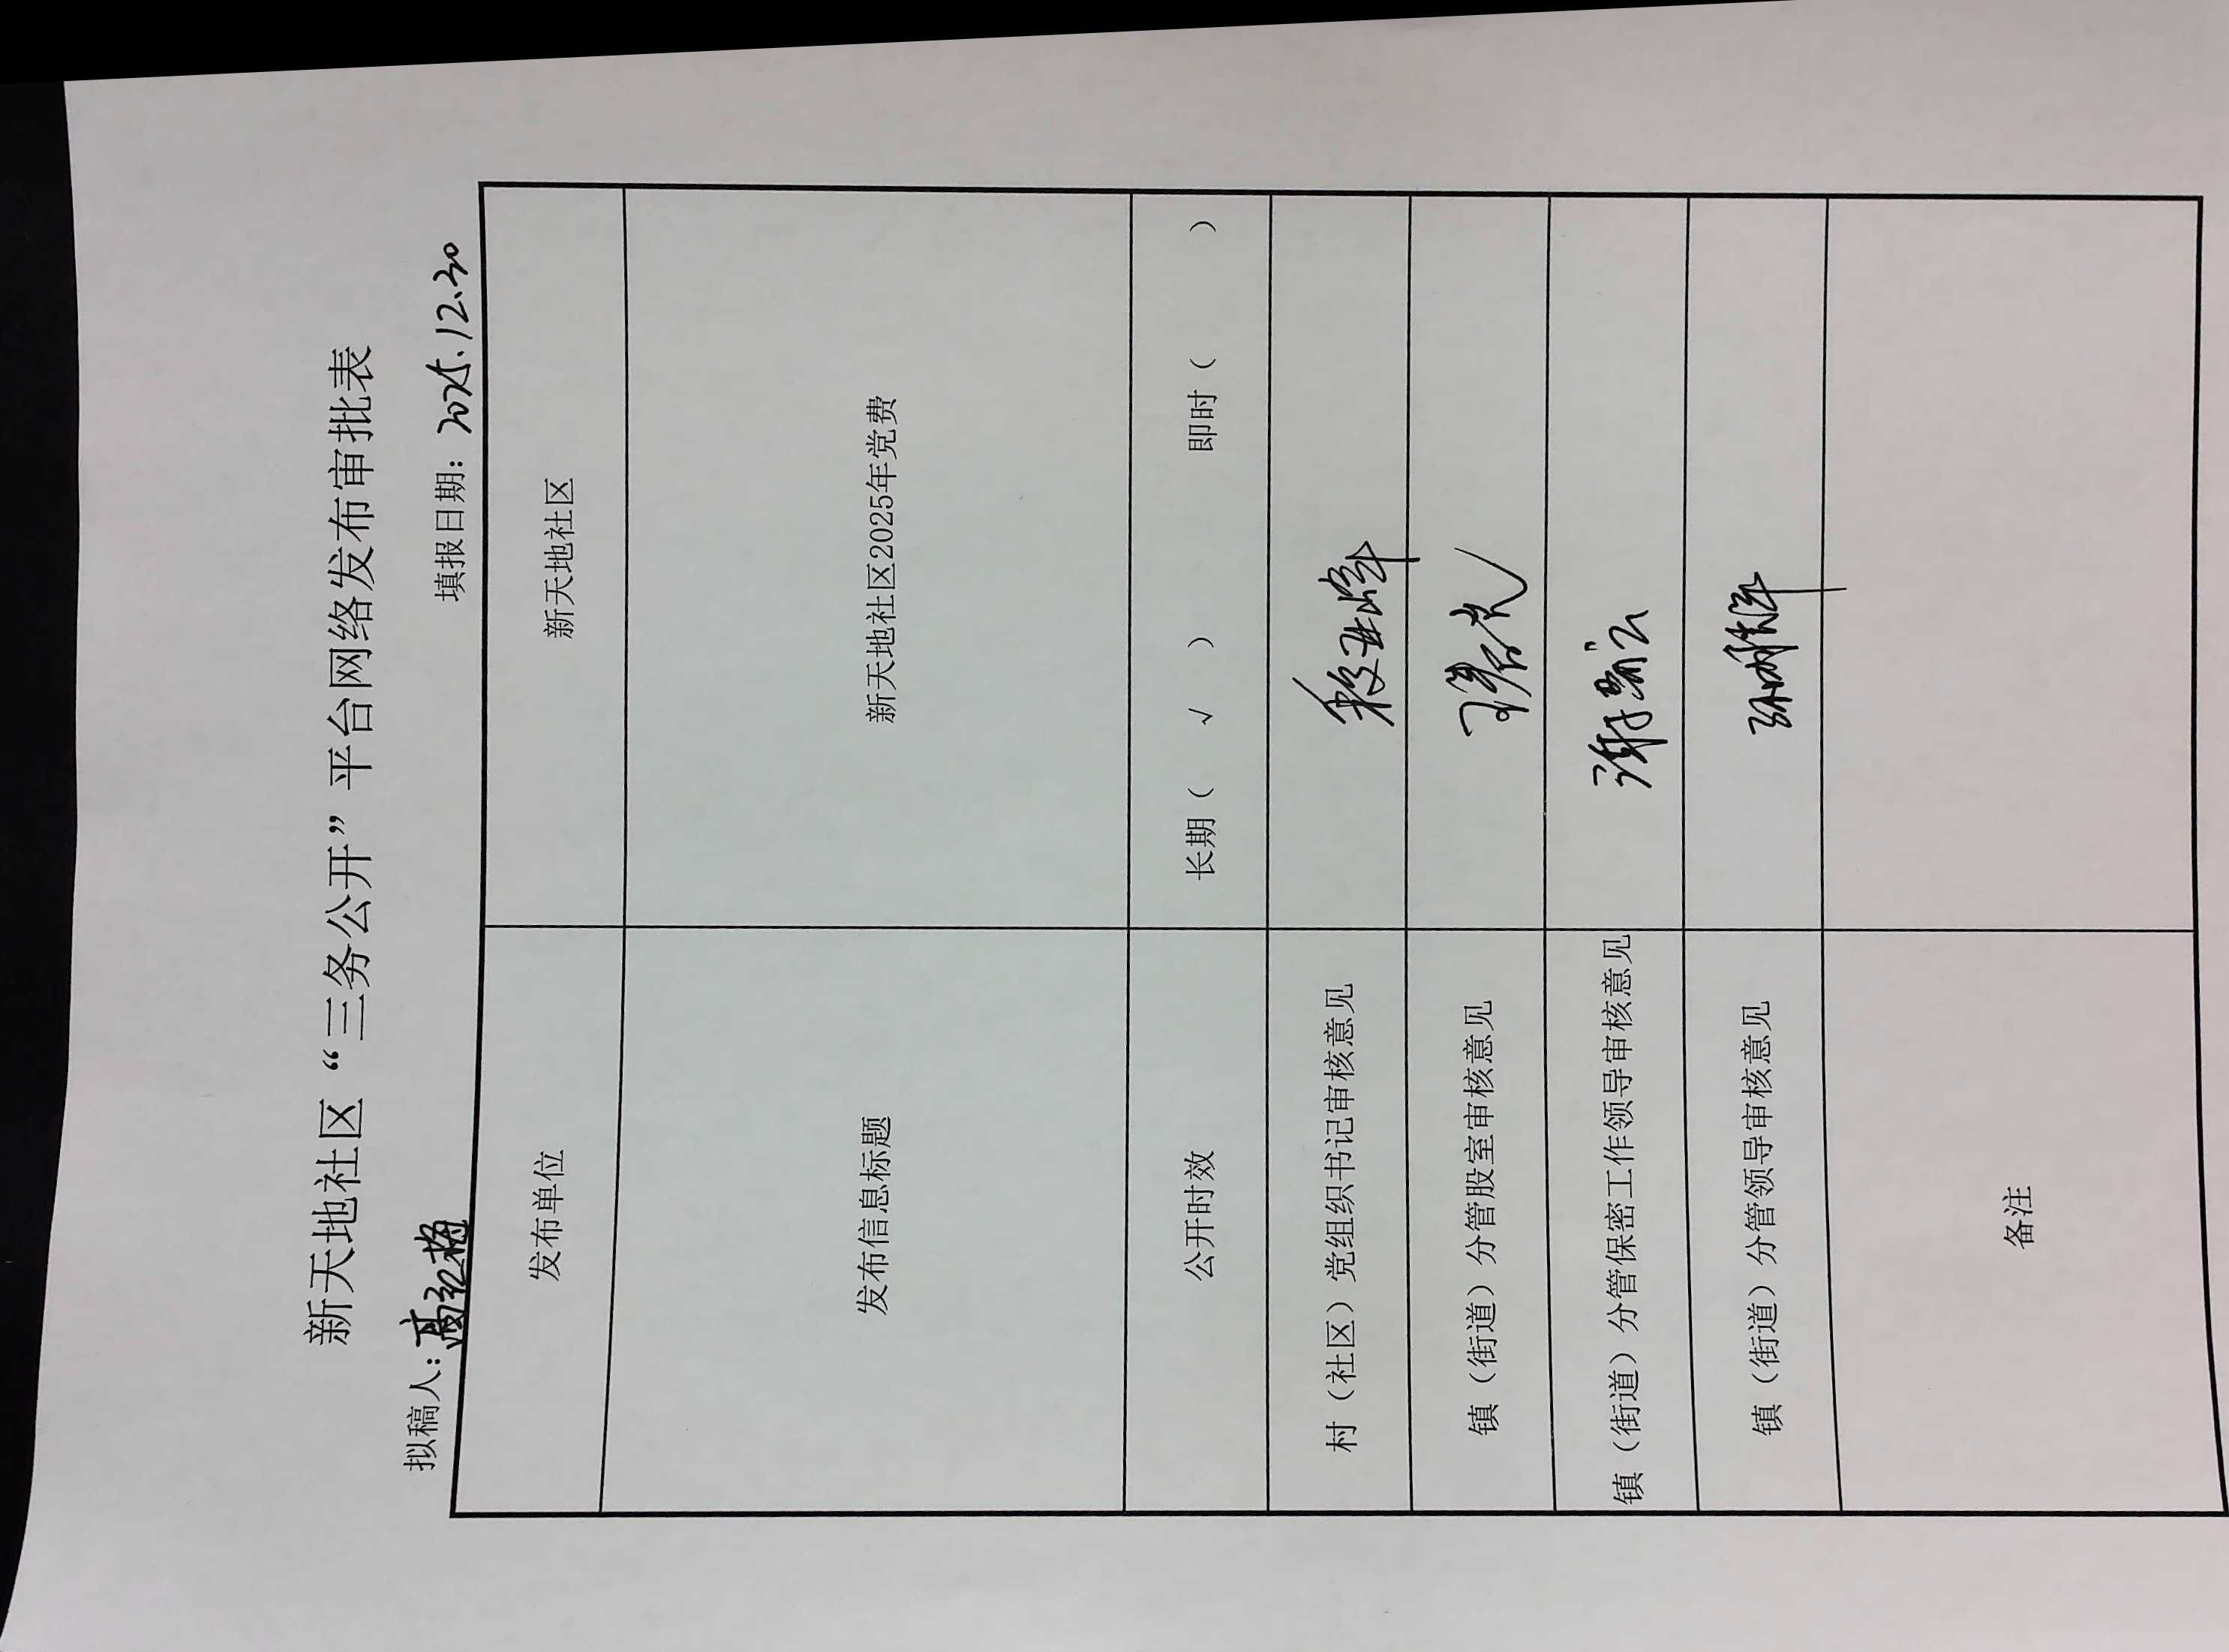 新天地社区“三务公开”平台网络发布审批表
拟稿人：高红梅 填报日期：2025.12.30
发布单位 新天地社区
发布信息标题 新天地社区2025年党费
公开时效 长期（ √ ） 即时（ ）
村（社区）党组织书记审核意见
镇（街道）分管股室审核意见
镇（街道）分管保密工作领导审核意见
镇（街道）分管领导审核意见
备注